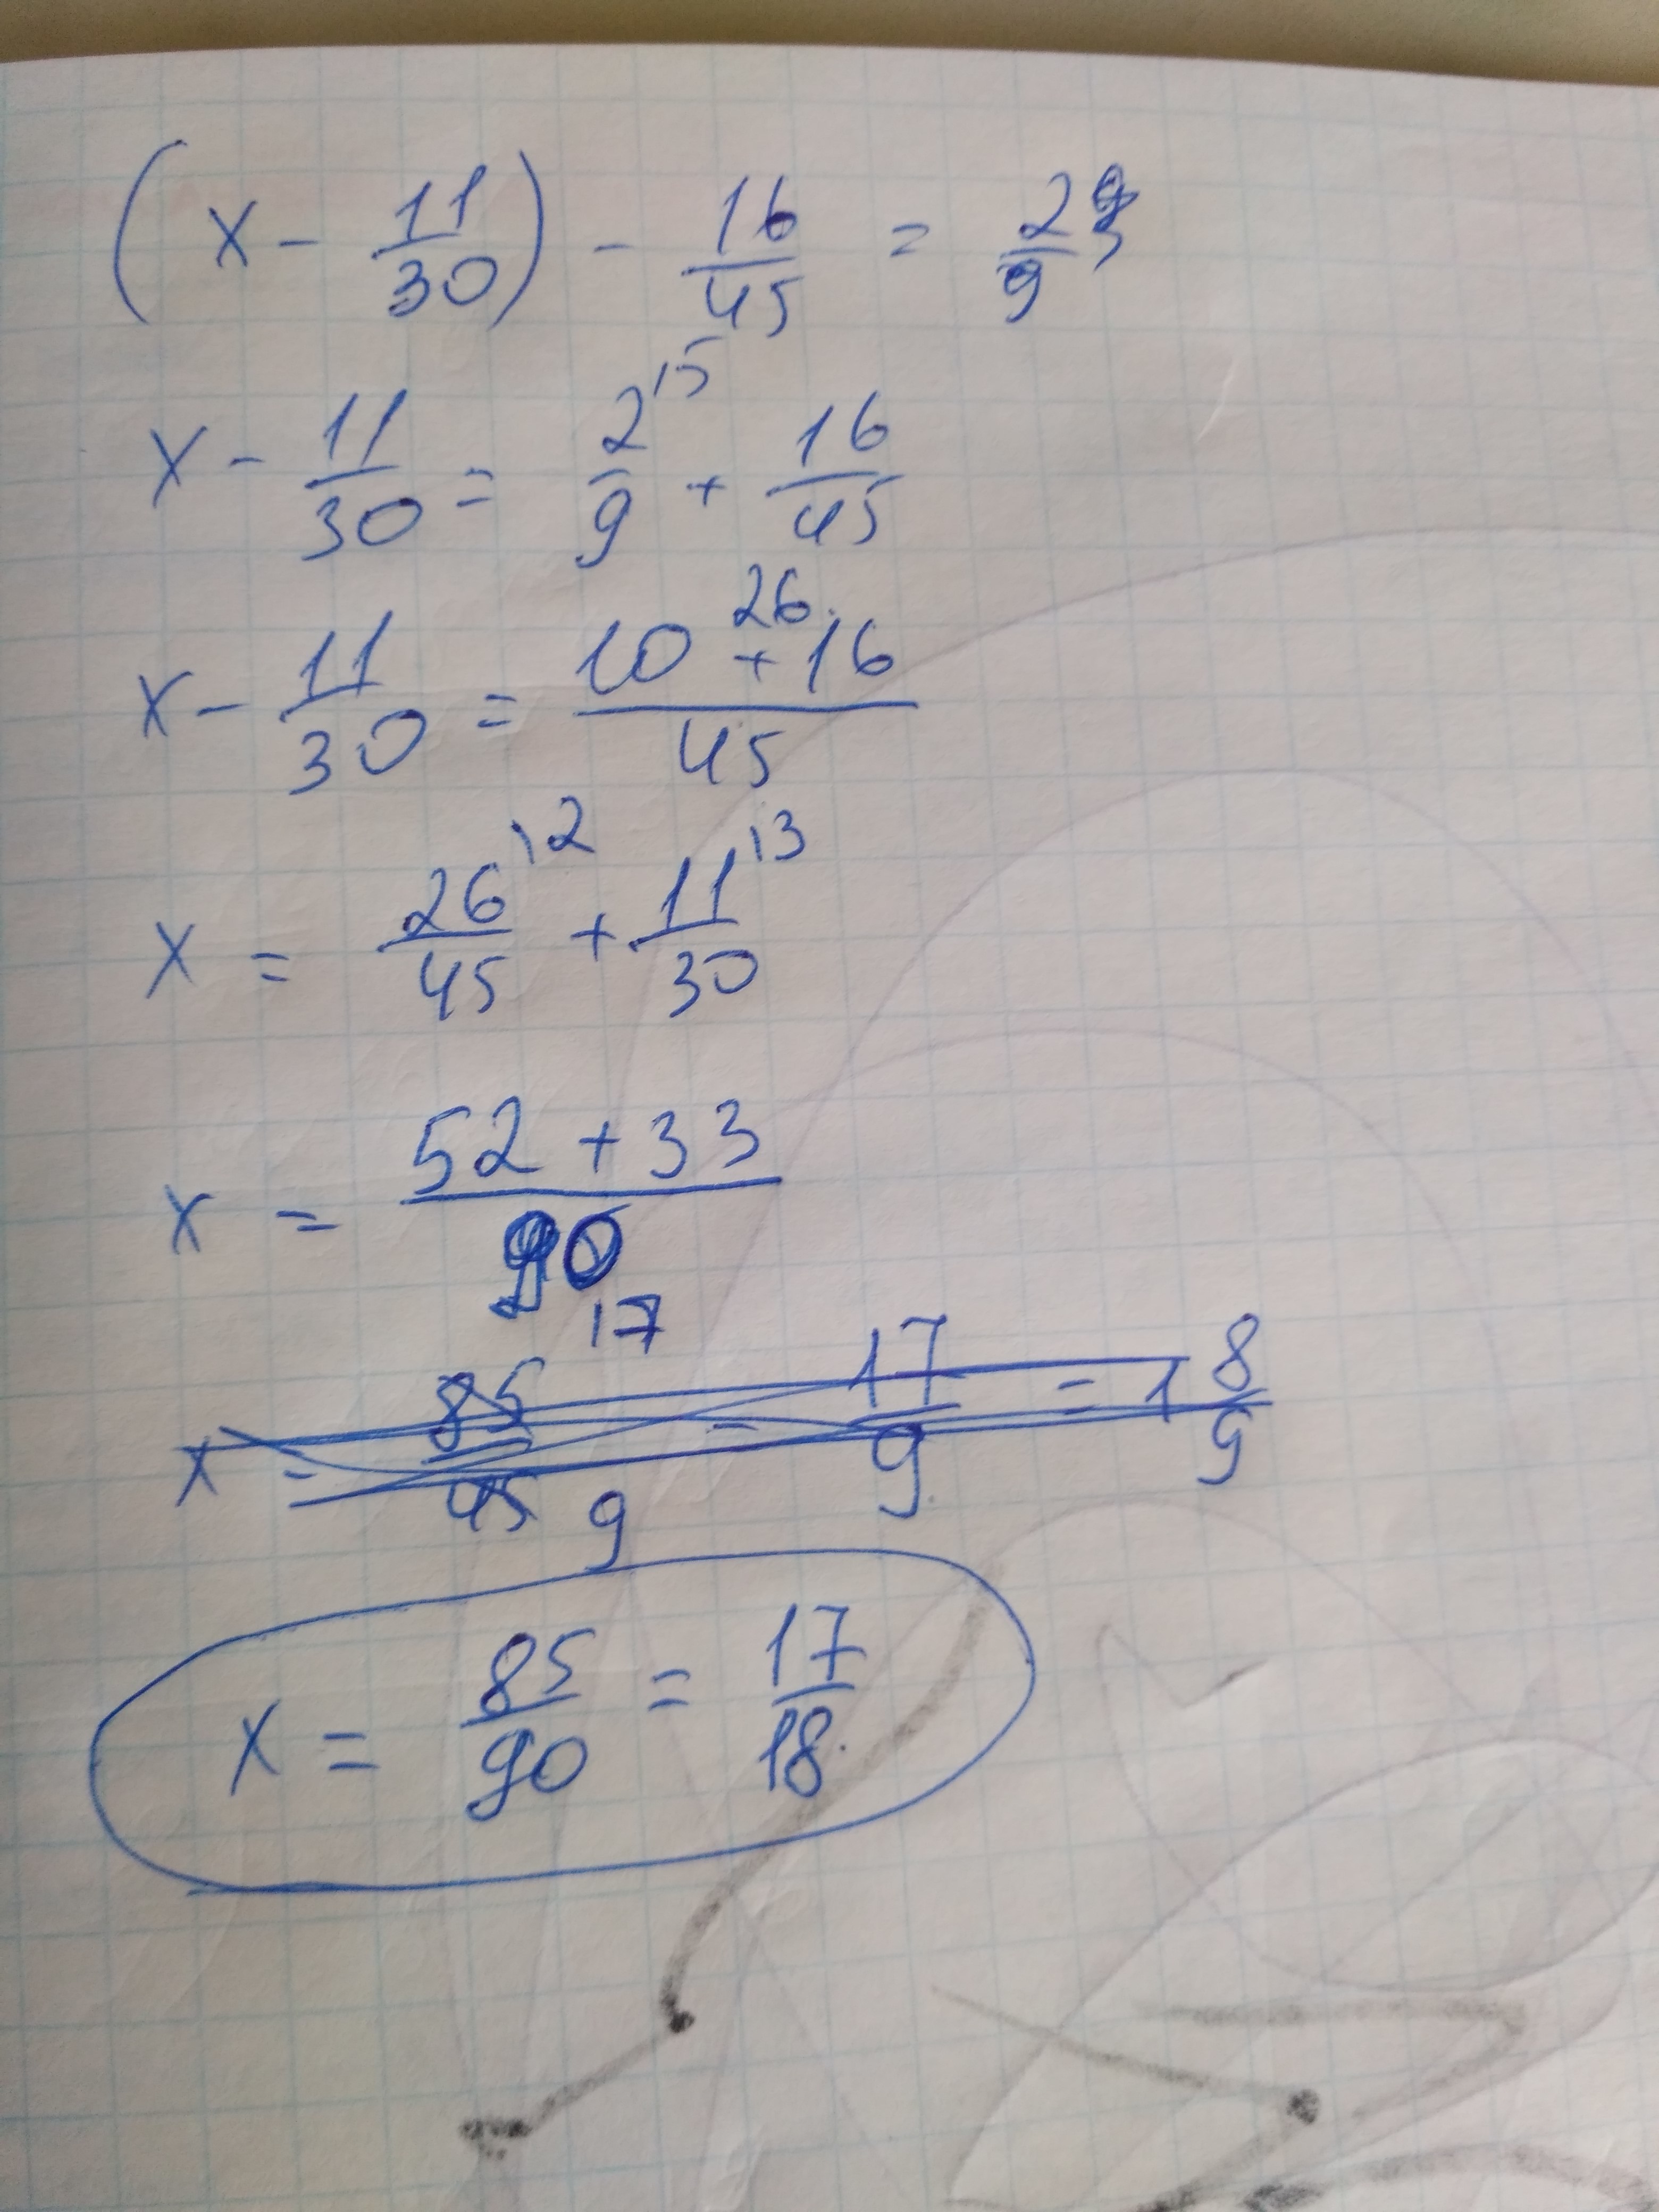 (x - 11/30) - 16/45 = 2/9
x - 11/30 = 2/9 \5 + 16/45
26
x - 11/30 = (10 + 16)/45
x = 26/45 \2 + 11/30 \3
x = (52 + 33)/90
x = 85/45 17/9 = 17/9 = 1 8/9
x = 85/90 = 17/18.